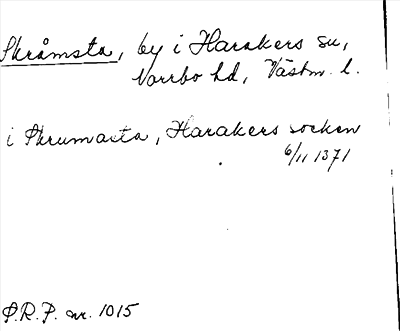 Skråmsta, by i Harakers sn,
Norrbo hd, Västm. l.
i Skrumasta, Harakers socken
6/11 1371
P.R.P. nr. 1015